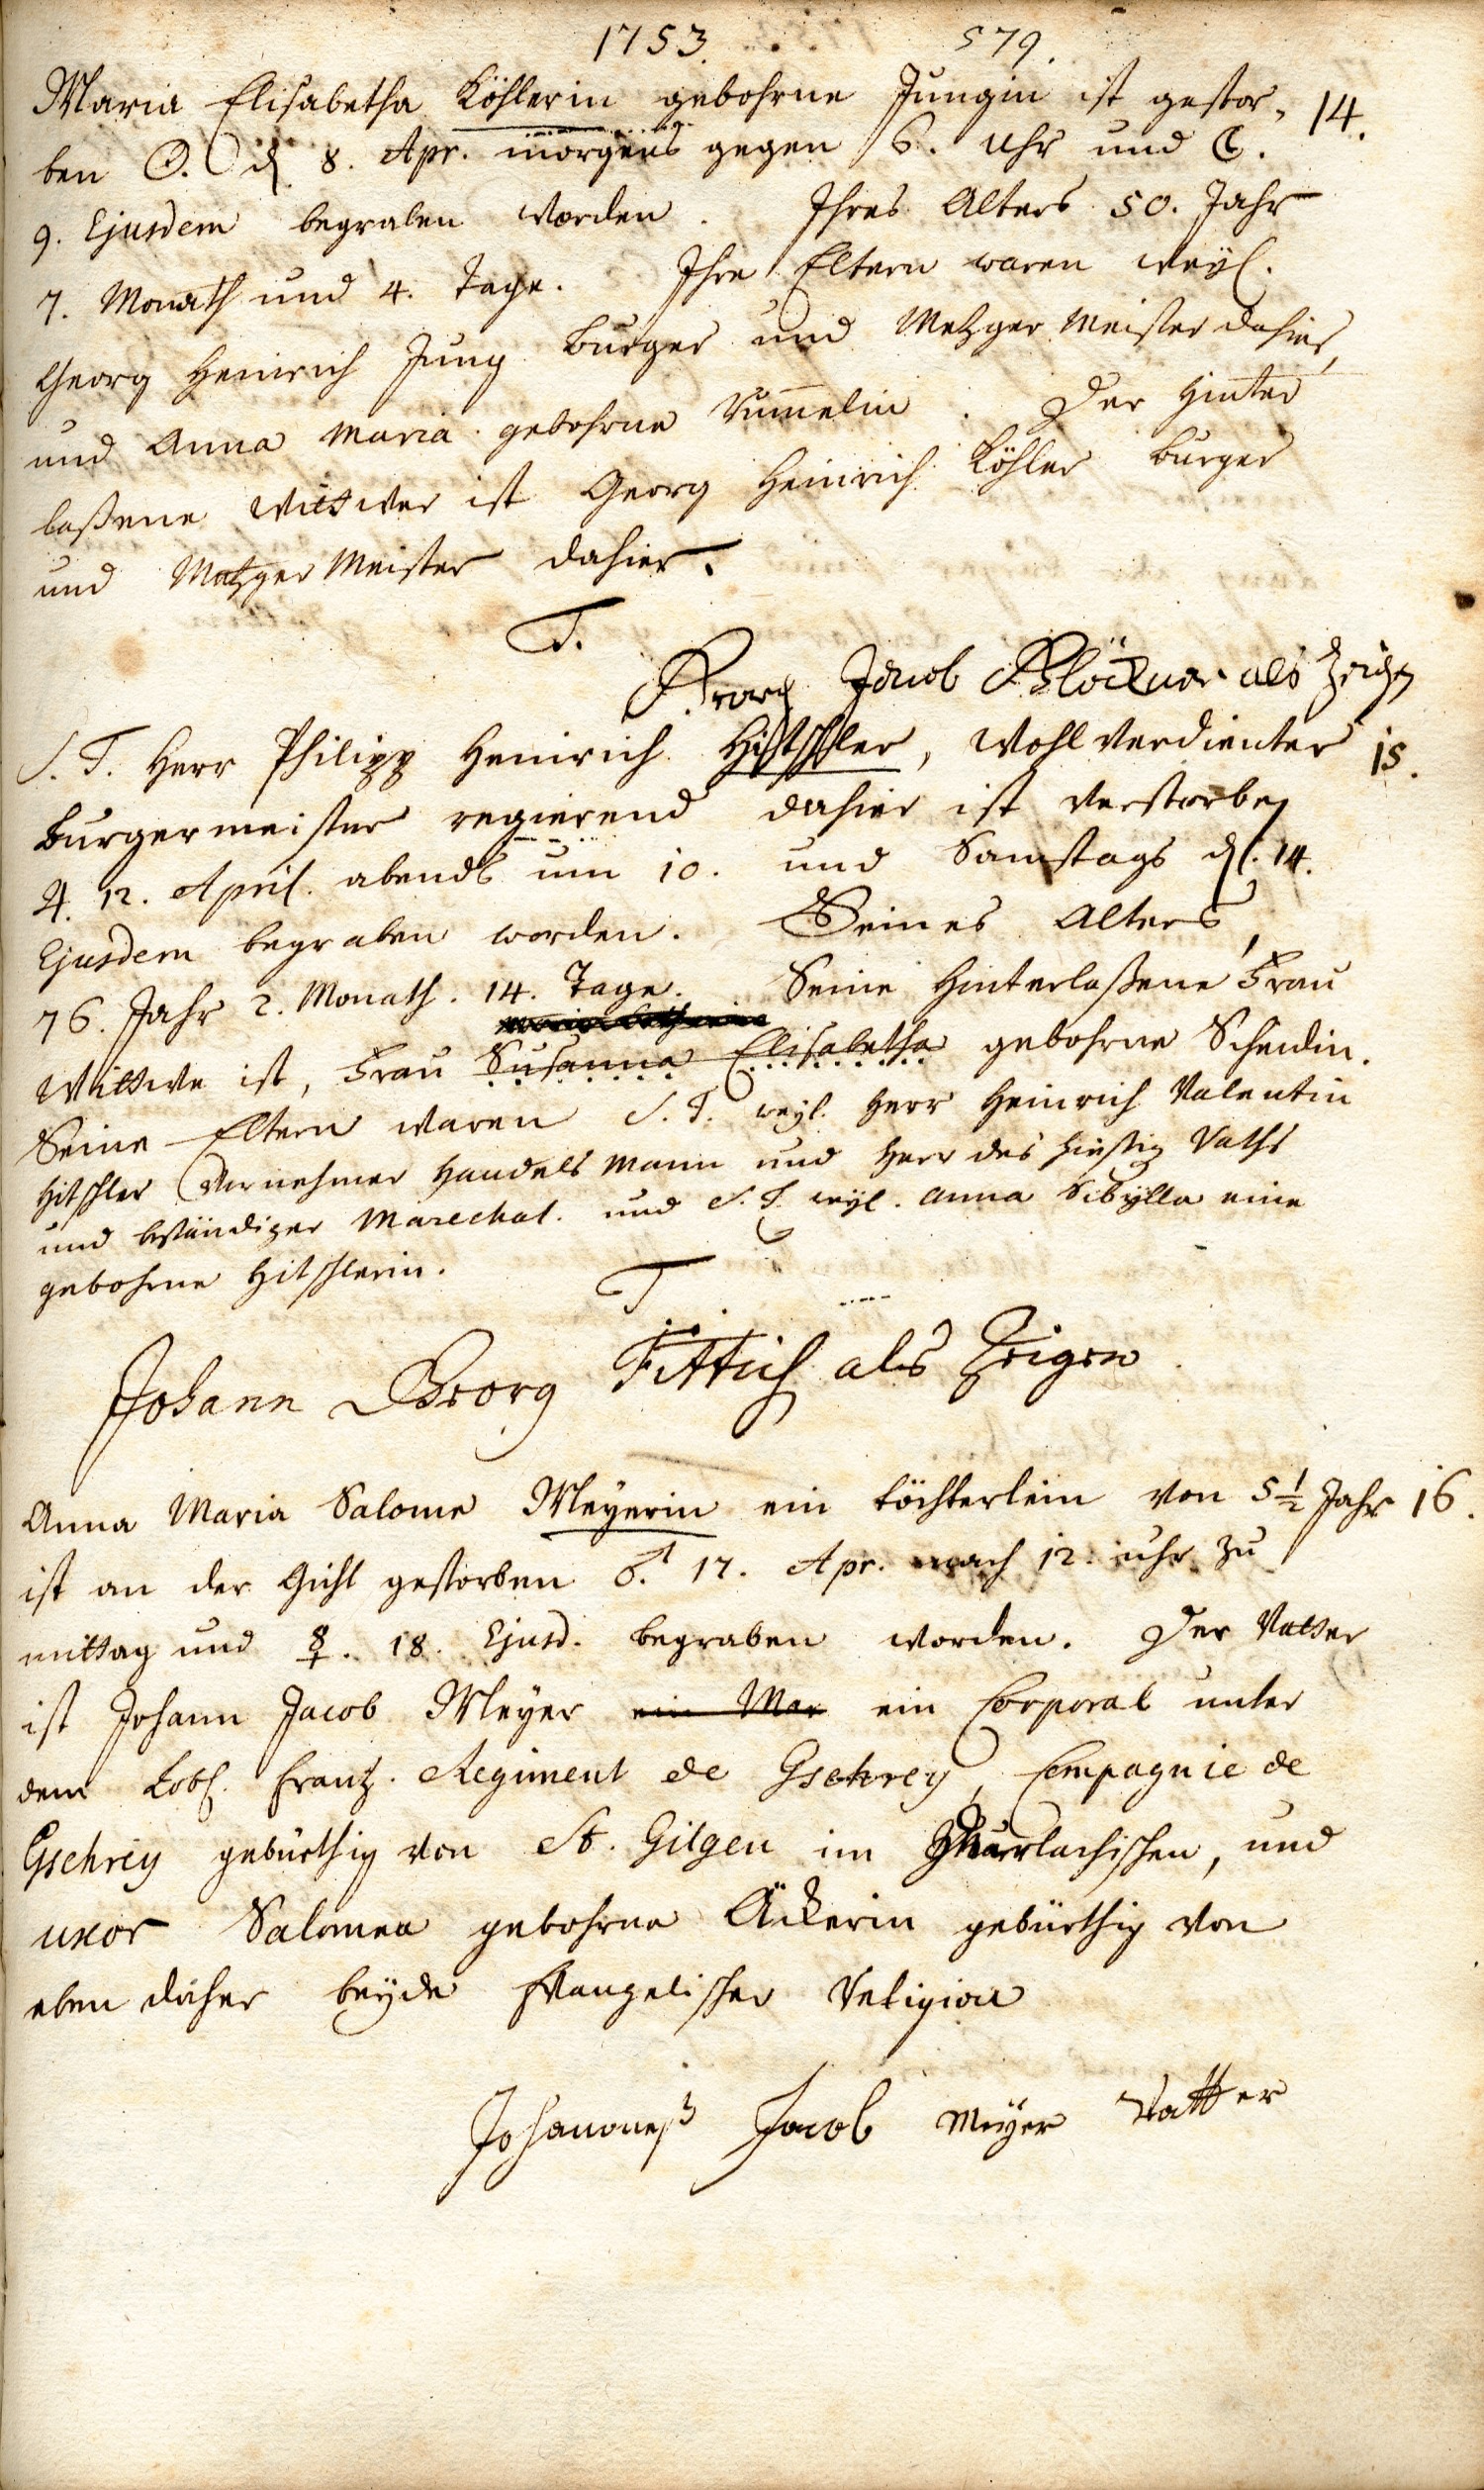 1753. 579.
Maria Elisabetha Köhlerin gebohrne Jungin ist gestor- 14.
ben ☉. d. 8. Apr. morgens gegen 6. Uhr und ☾.
9. Ejusdem begraben worden. Ihres Alters 50. Jahr
7. Monath und 4. Tage. Ihre Eltern waren weyl.
Georg Heinrich Jung Burger und Metzger Meister dahier,
und Anna Maria gebohrne Rum̅elin. Der hinter
laßene Wittwer ist Georg Heinrich Köhler Burger
und Metzger Meister dahier.
T.
Georg Jacob Klöckner als Zeigen
S. T. Herr Philipp Heinrich Hitschler, Wohlverdienter 15.
Burgermeister regierend dahier ist verstorben
♃. 12. April. abends um 10. und Samstags d. 14.
Ejusdem begraben worden. Seines Alters
76. Jahr 2. Monath. 14. Tage. Seine hinterlaßene Frau
Wittwe ist, Frau Susanna Elisabetha gebohrne Scheidin.
Seine Eltern waren S. T. weyl. Herr Heinrich Valentin
Hitschler Vornehmer Handels Mann und Herr des hiesig Raths
und beständiger Marechal. und S. T. weyl. Anna Sibylla eine
gebohrne Hitschlerin.
T
Johann Georg Fittich als Zeigen
Anna Maria Salome Meyerin ein töchterlein von 5 1/2 Jahr 16.
ist an der Gicht gestorben ♂. 17. Apr. nach 12. uhr zu
mittag und ☿. 18. Ejusd. begraben worden. Der Vatter
ist Johann Jacob Meyer ein Mar ein Corporal unter
dem Lobl. Frantz. Regiment de Gschrey, Compagnie de
Gschrey gebürthig von St. Gilgen im Durlachischen, und
uxor Salomea gebohrne Äckerin gebürthig von
eben daher beyde Evangelischer Religion
Johanneß Jacob Meyer Vatter